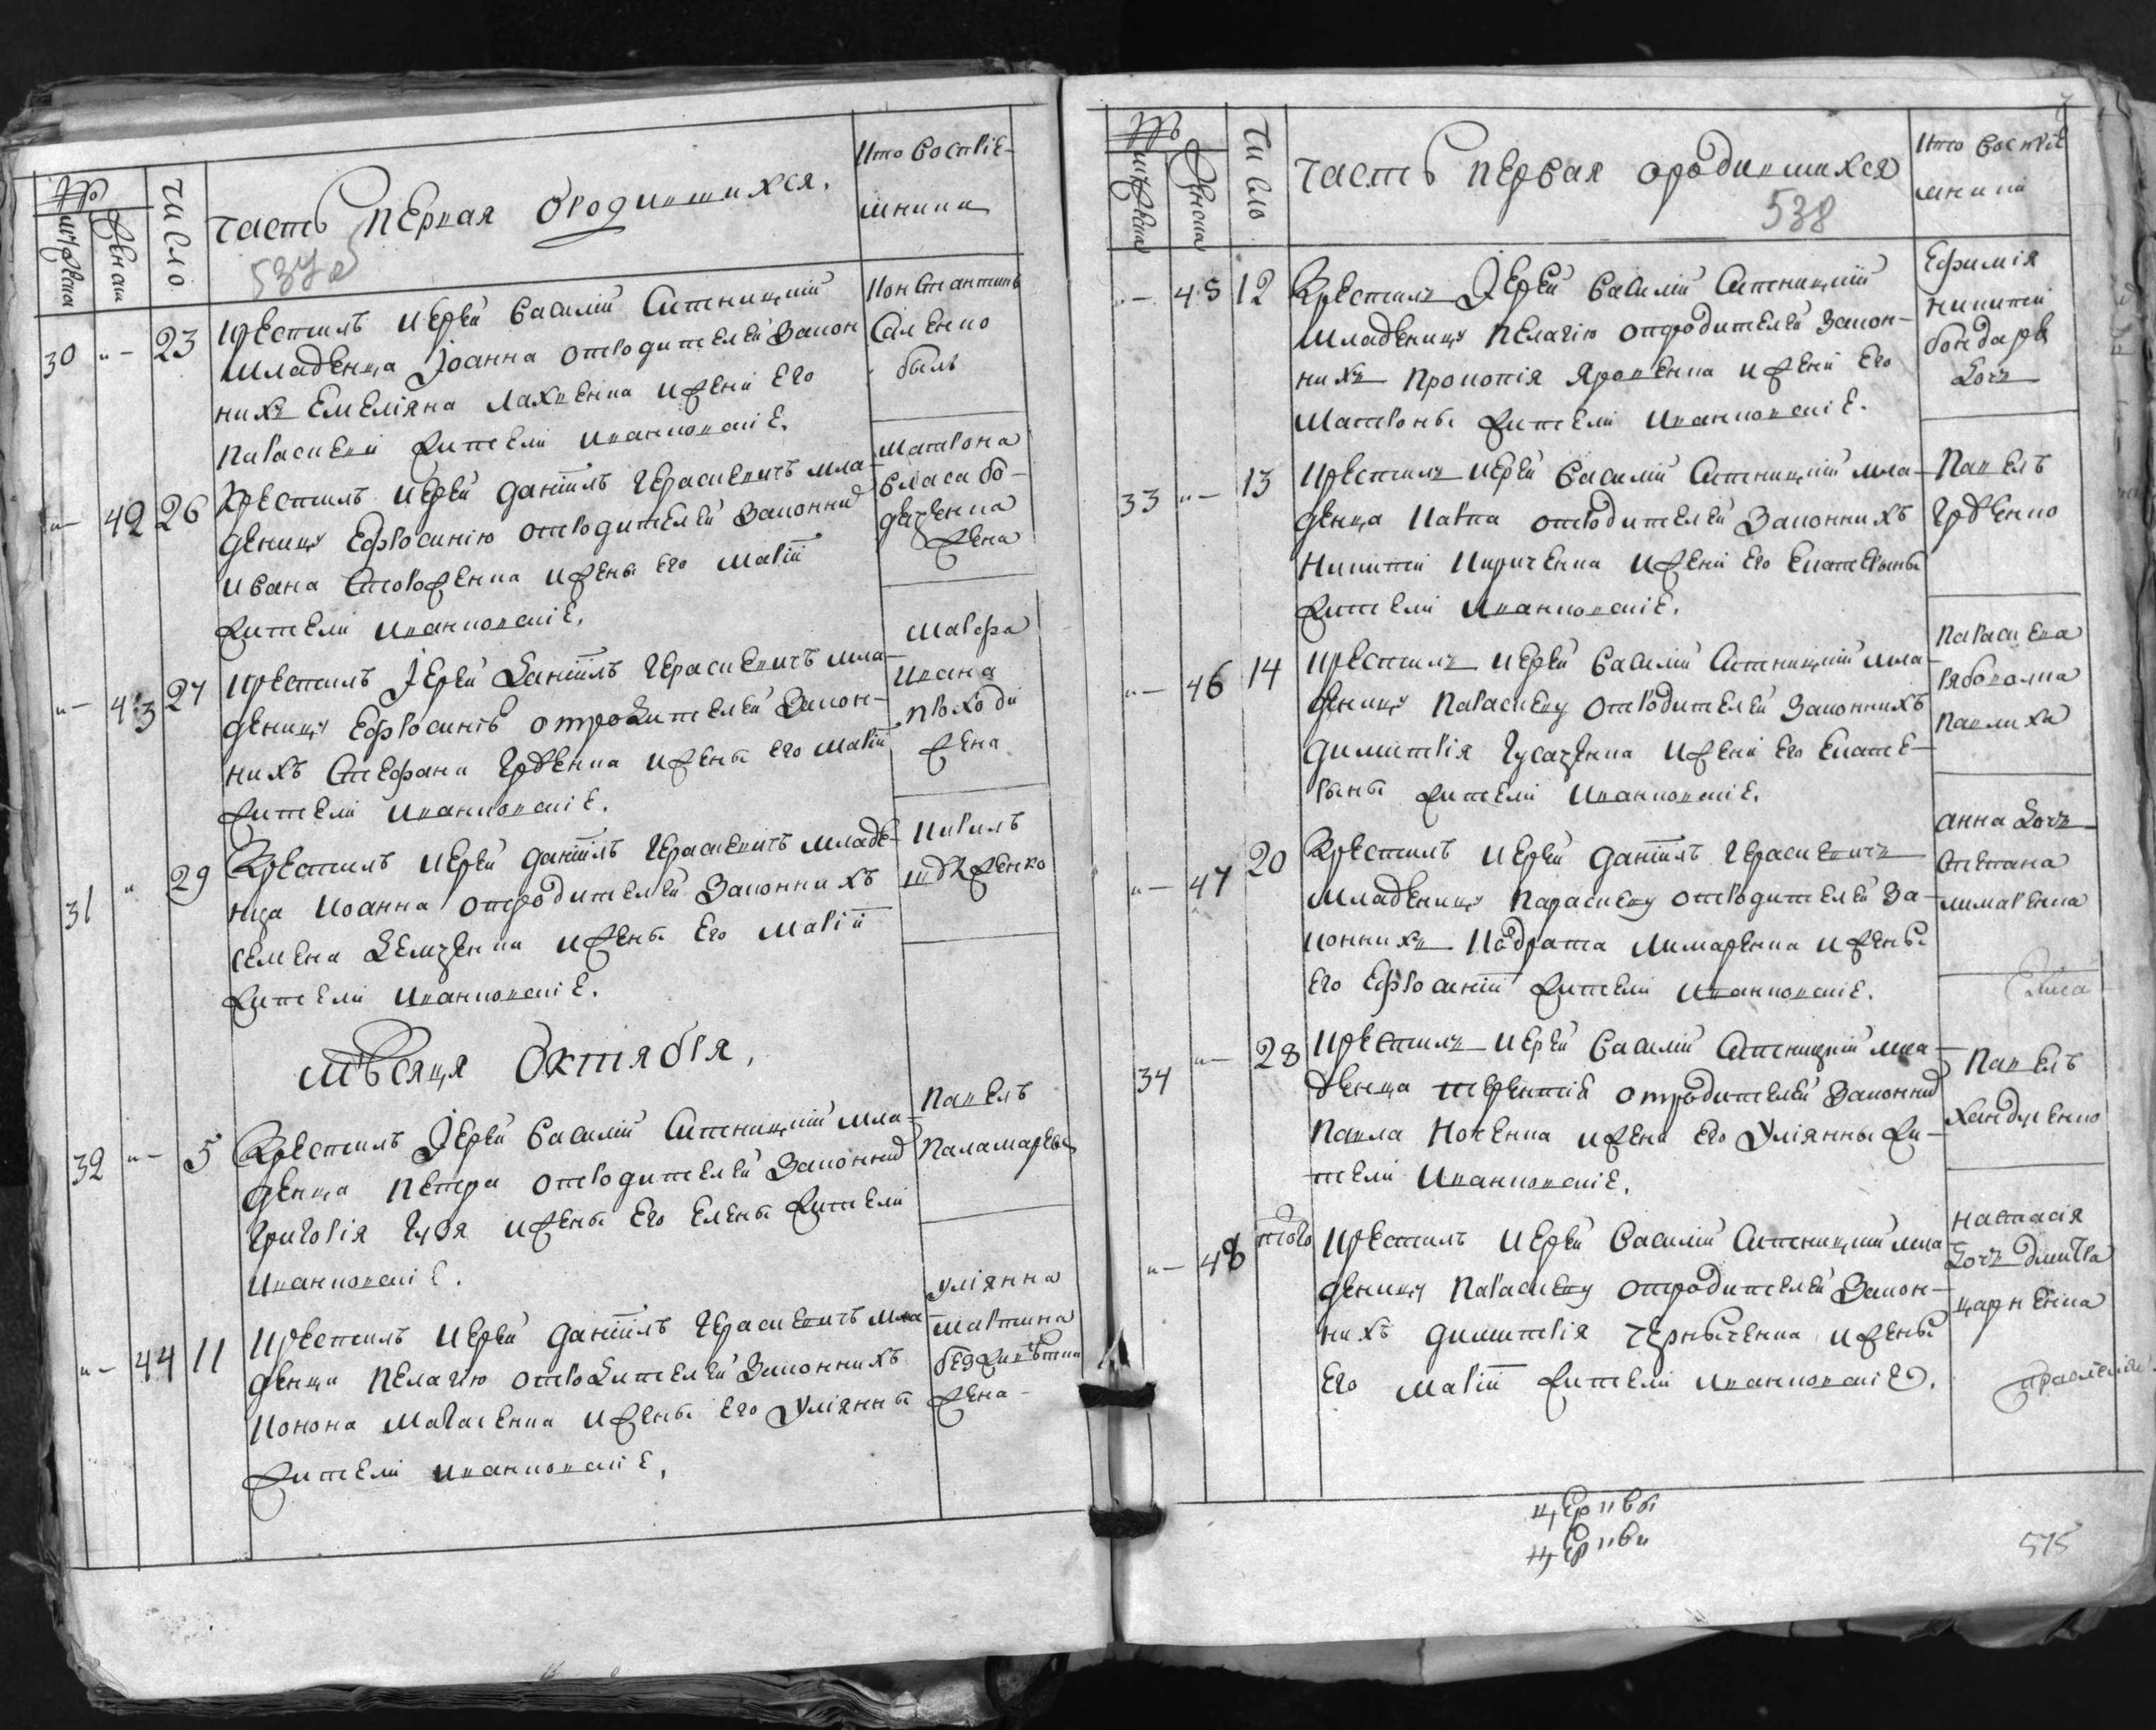 Число
часть первая о родившихся.
Кто воспріе-
мники
30 „ — 23
крестилъ иерей василій Ситницкий
младенца Iоанна от родителей закон
нихъ Емеліяна и жени его
параскеви жители иванковскіе.
Константинъ
„ — 42 26
Крестилъ иерей даніилъ Герасиевичъ мла
деницу Ефросинію от родителей законних
ивана Стороженка и жены его маріи
жители иванковскіе.
матрона
власа
жена
„ — 43 27
крестилъ Iерей Даніилъ Герасиевичъ мла
деницу Ефросинію от родителей закон-
нихъ Стефана и жены его маріи
жители иванковскіе.
марфа
ивана
жена
31 „ 29
Крестилъ иерей даніилъ Герасиевичъ младе-
нца иоанна от родителей законнихъ
семена Демченка и жены его маріи
жители иванковскіе.
кирилъ
мѣсяця Октября,
32 „ — 5
Крестилъ Iерей василій Ситницкий мла-
денца петра от родителей законних
григорія и жены его елены жители
иванковскіе.
павелъ
паламарь
„ — 44 11
крестилъ иерей даніилъ Герасиевичъ мла
денци пелагію от родителей законнихъ
конона Макаренка и жены его уліянны
жители иванковскіе.
уліянна
мартина
жена
Число
часть первая о родившихся
538
Кто воспріе
мники
„ — 45 12
Крестилъ Iерей василій Ситницкий
младеницу пелагію от родителей закон-
нихъ прокопія Яровенка и жени его
матроны жители иванковскіе.
Ефимія
никити
бондаря
дочь
33 „ — 13
крестилъ иерей василій Ситницкий мла-
денца карпа от родителей законнихъ
никити Кириченка и жени его екатерины
жители иванковскіе.
павелъ
„ — 46 14
крестилъ иерей василій Ситницкий мла
деницу параскеву от родителей законнихъ
димитрія Гусаченка и жени его екате-
рыны жители иванковскіе.
параскева
павлиха
„ — 47 20
Крестилъ иерей даніилъ Герасиевичъ
младеницу параскеву от родителей за-
коннихъ Кодрата лимаренка и жены
его ефросиніи жители иванковскіе.
анна дочь
степана
лимаренка
34 „ — 28
крестилъ иерей василій Ситницкий мла-
денца терентія от родителей законних
павла и жени его уліянны жи-
тели иванковскіе.
павелъ
„ — 48 того
крестилъ иерей василій Ситницкий мла
деницу параскеву от родителей закон-
нихъ димитрія черныченка и жены
его маріи жители иванковскіе.
настасія
дочь дмитра
церкви
церкви
515